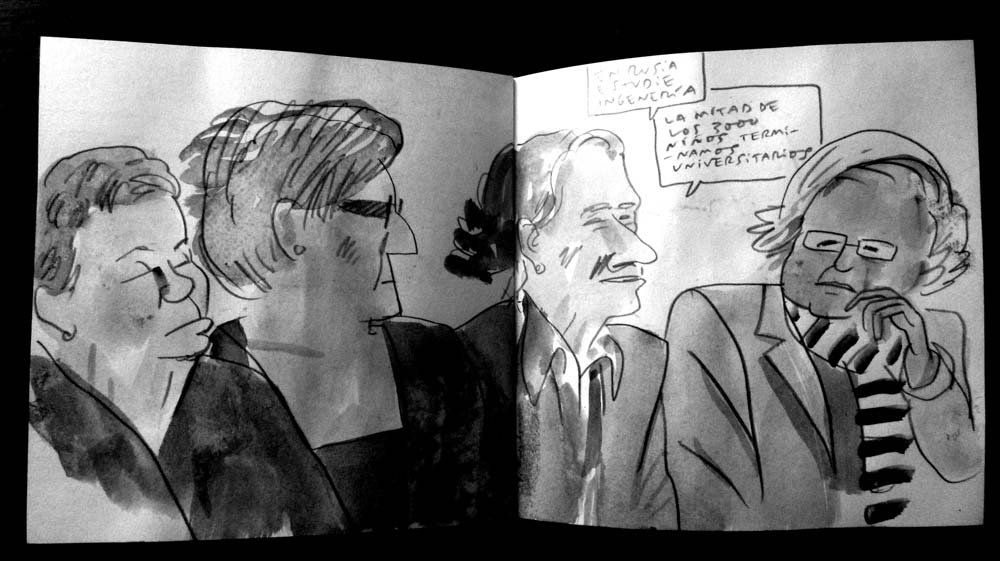 EN RUSIA
ESTUDIE
INGENERÍA
LA MITAD DE
LOS 3000
NIÑOS TERMI-
-NAMOS
UNIVERSITARIOS